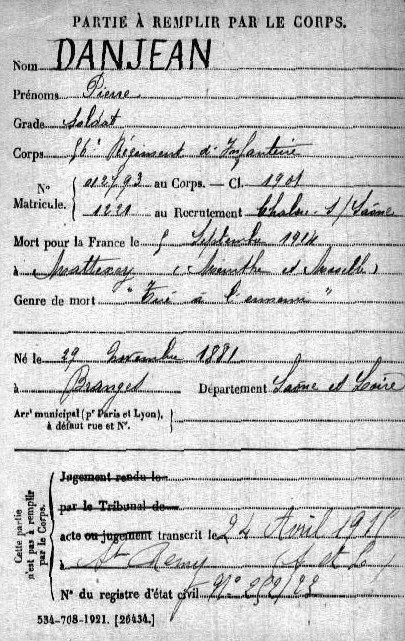 PARTIE À REMPLIR PAR LE CORPS.
Nom DANJEAN
Prénoms Pierre
Grade Soldat
Corps 56e Régiment d'Infanterie
N° Matricule. { au Corps. — Cl. 1901
1221 au Recrutement Chalon-S/Saône
Mort pour la France le 5 Septembre 1914
à Mattexey (Meurthe et Moselle)
Genre de mort "Tué à l'ennemi"
Né le 29 novembre 1881
à Branges Département Saône et Loire
Arrt municipal (pr Paris et Lyon), à défaut rue et N°.
Cette partie n'est pas à remplir par le Corps.
Jugement rendu le
par le Tribunal de
acte ou jugement transcrit le 24 Avril
à St Remy (S et L)
N° du registre d'état civil
534-708-1921. [26434.]